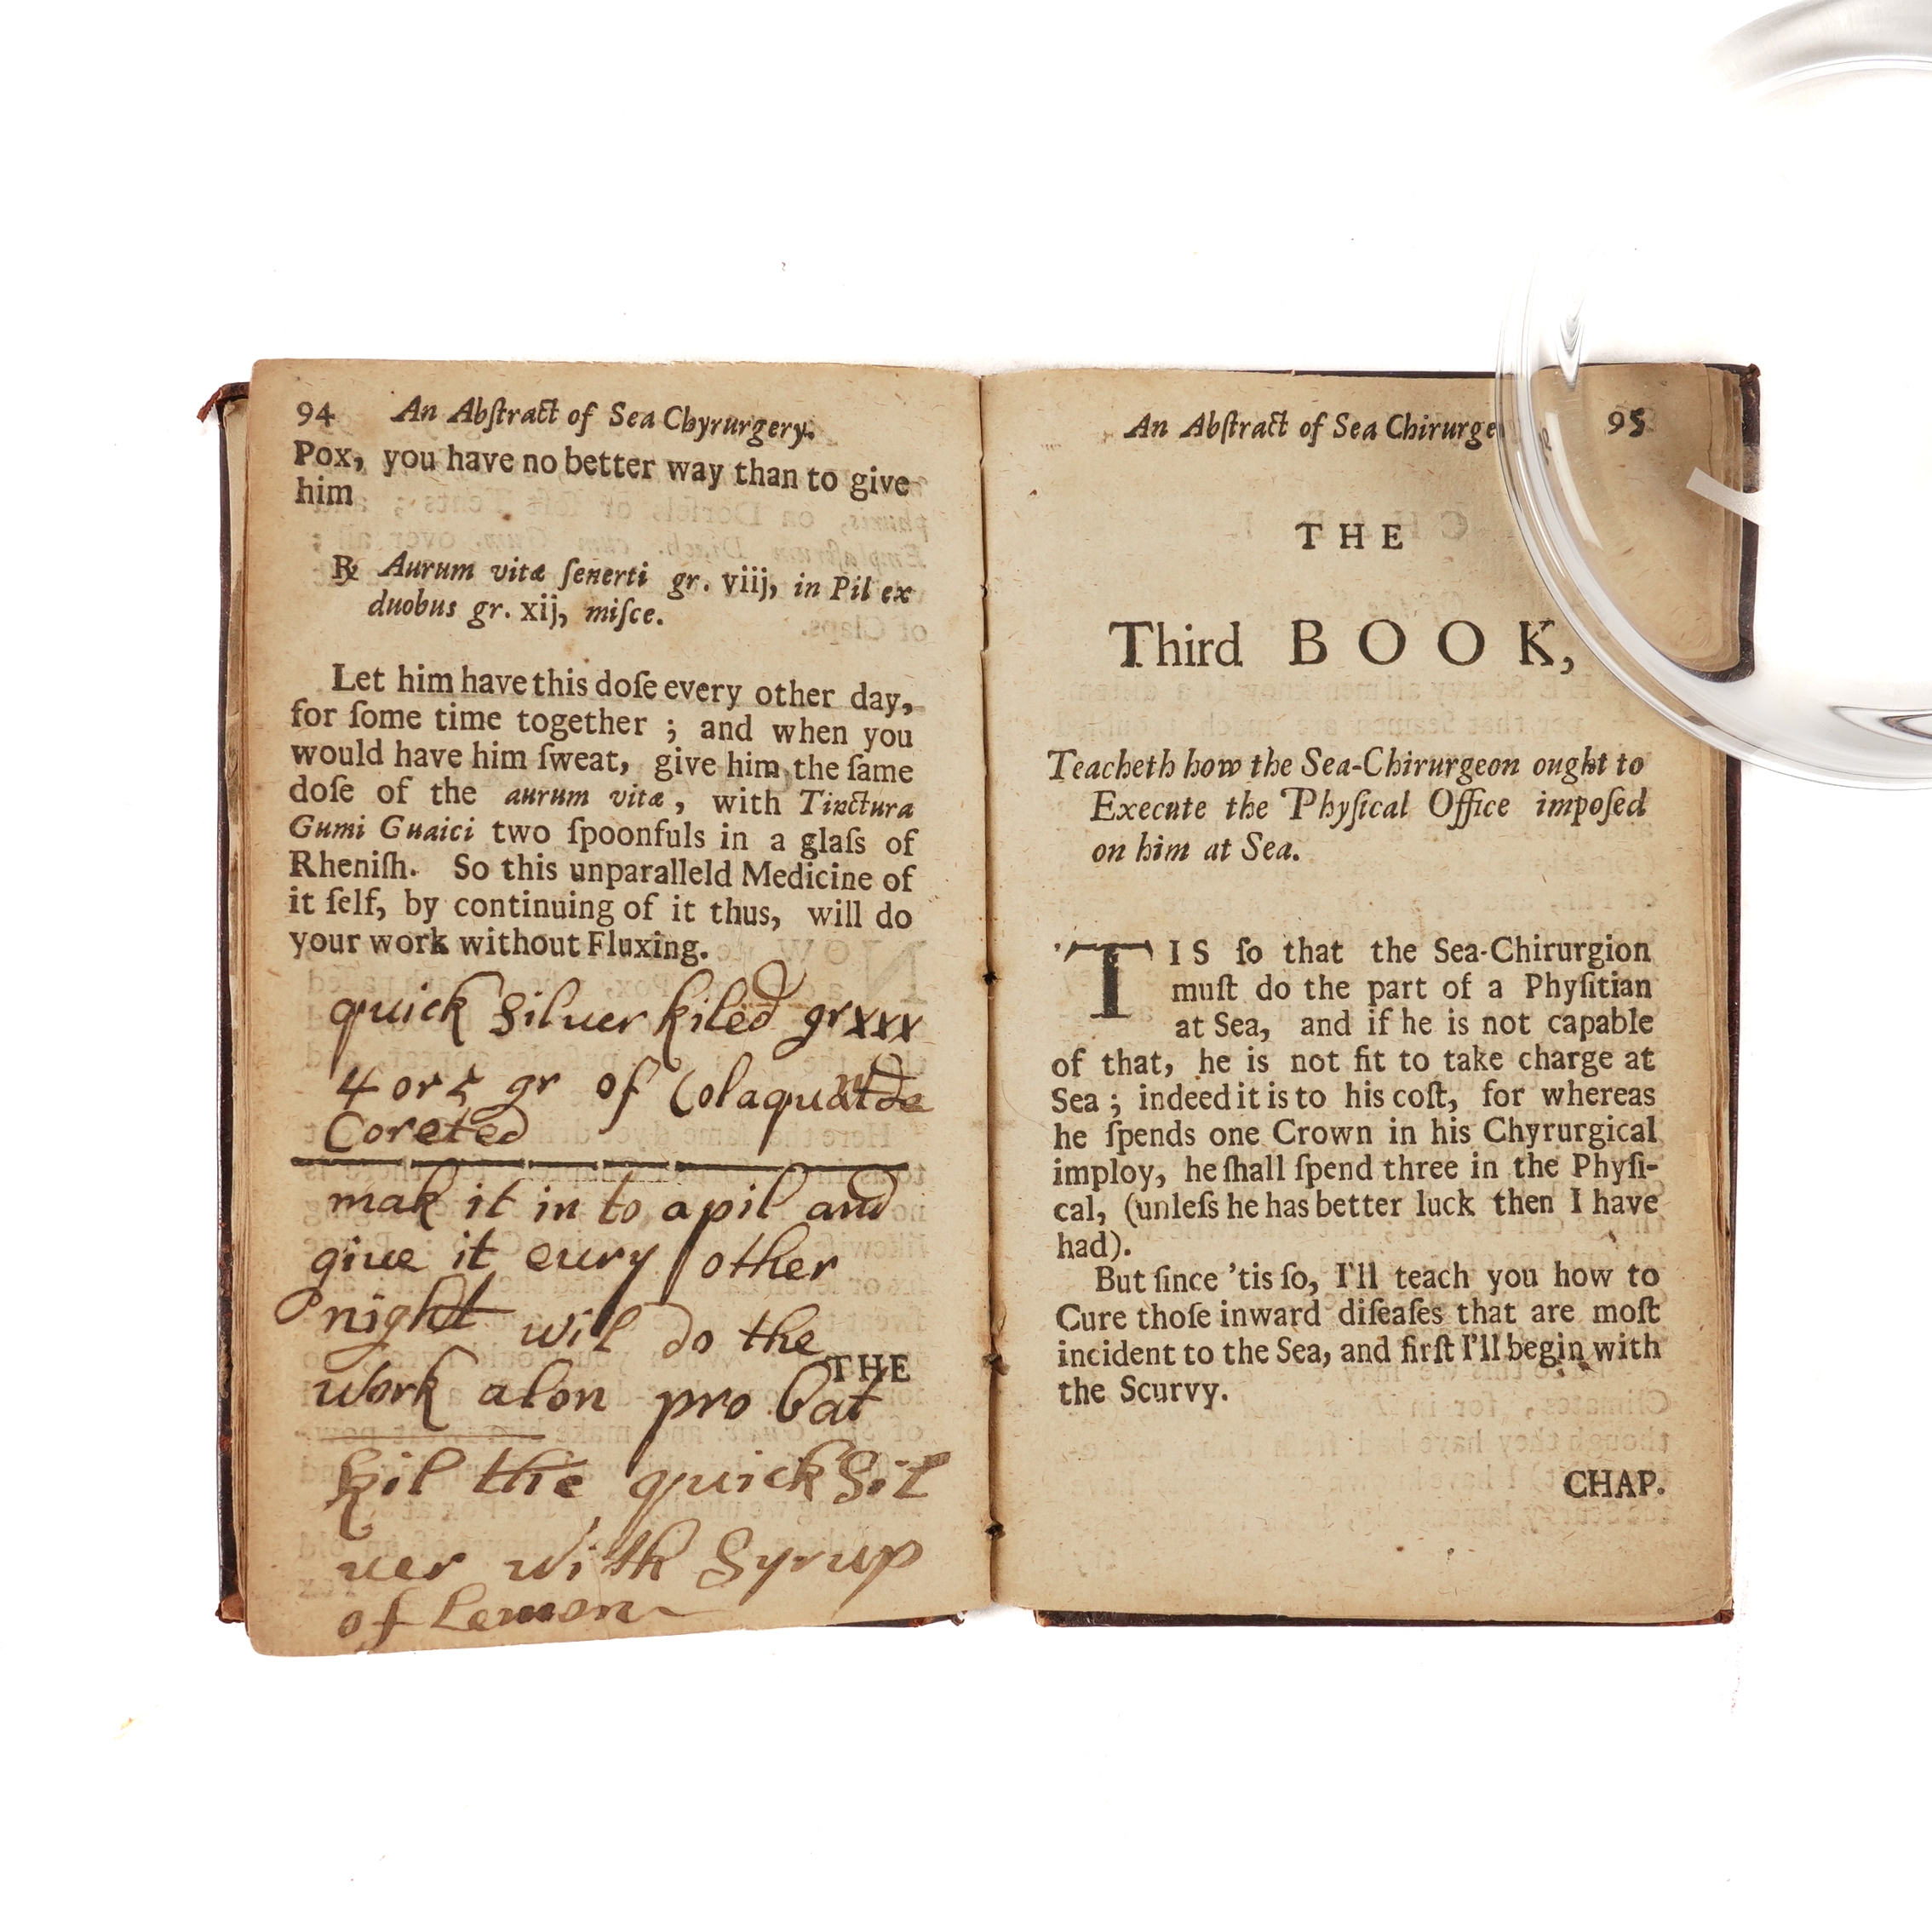 94 An Abſtract of Sea Chyrurgery.
Pox, you have no better way than to give
him
℞ Aurum vitæ ſenerti gr. viij, in Pil ex
duobus gr. xij, miſce.
Let him have this doſe every other day,
for ſome time together ; and when you
would have him ſweat, give him the ſame
doſe of the aurum vitæ, with Tinctura
Gumi Guaici two ſpoonfuls in a glaſs of
Rheniſh. So this unparalleld Medicine of
it ſelf, by continuing of it thus, will do
your work without Fluxing.
quick Silver kiled gr xxx
4 or 5 gr of
Coreted
mak it in to a pil and
giue it eury other
night wil do the
THE
work alon pro bat
kil the quick Sil
uer with Syrup
of Lemon
An Abſtract of Sea Chirurge 95
THE
Third BOOK,
Teacheth how the Sea-Chirurgeon ought to
Execute the Phyſical Office impoſed
on him at Sea.
'TIS ſo that the Sea-Chirurgion
muſt do the part of a Phyſitian
at Sea, and if he is not capable
of that, he is not fit to take charge at
Sea ; indeed it is to his coſt, for whereas
he ſpends one Crown in his Chyrurgical
imploy, he ſhall ſpend three in the Phyſi-
cal, (unleſs he has better luck then I have
had).
But ſince 'tis ſo, I'll teach you how to
Cure thoſe inward diſeaſes that are moſt
incident to the Sea, and firſt I'll begin with
the Scurvy.
CHAP.